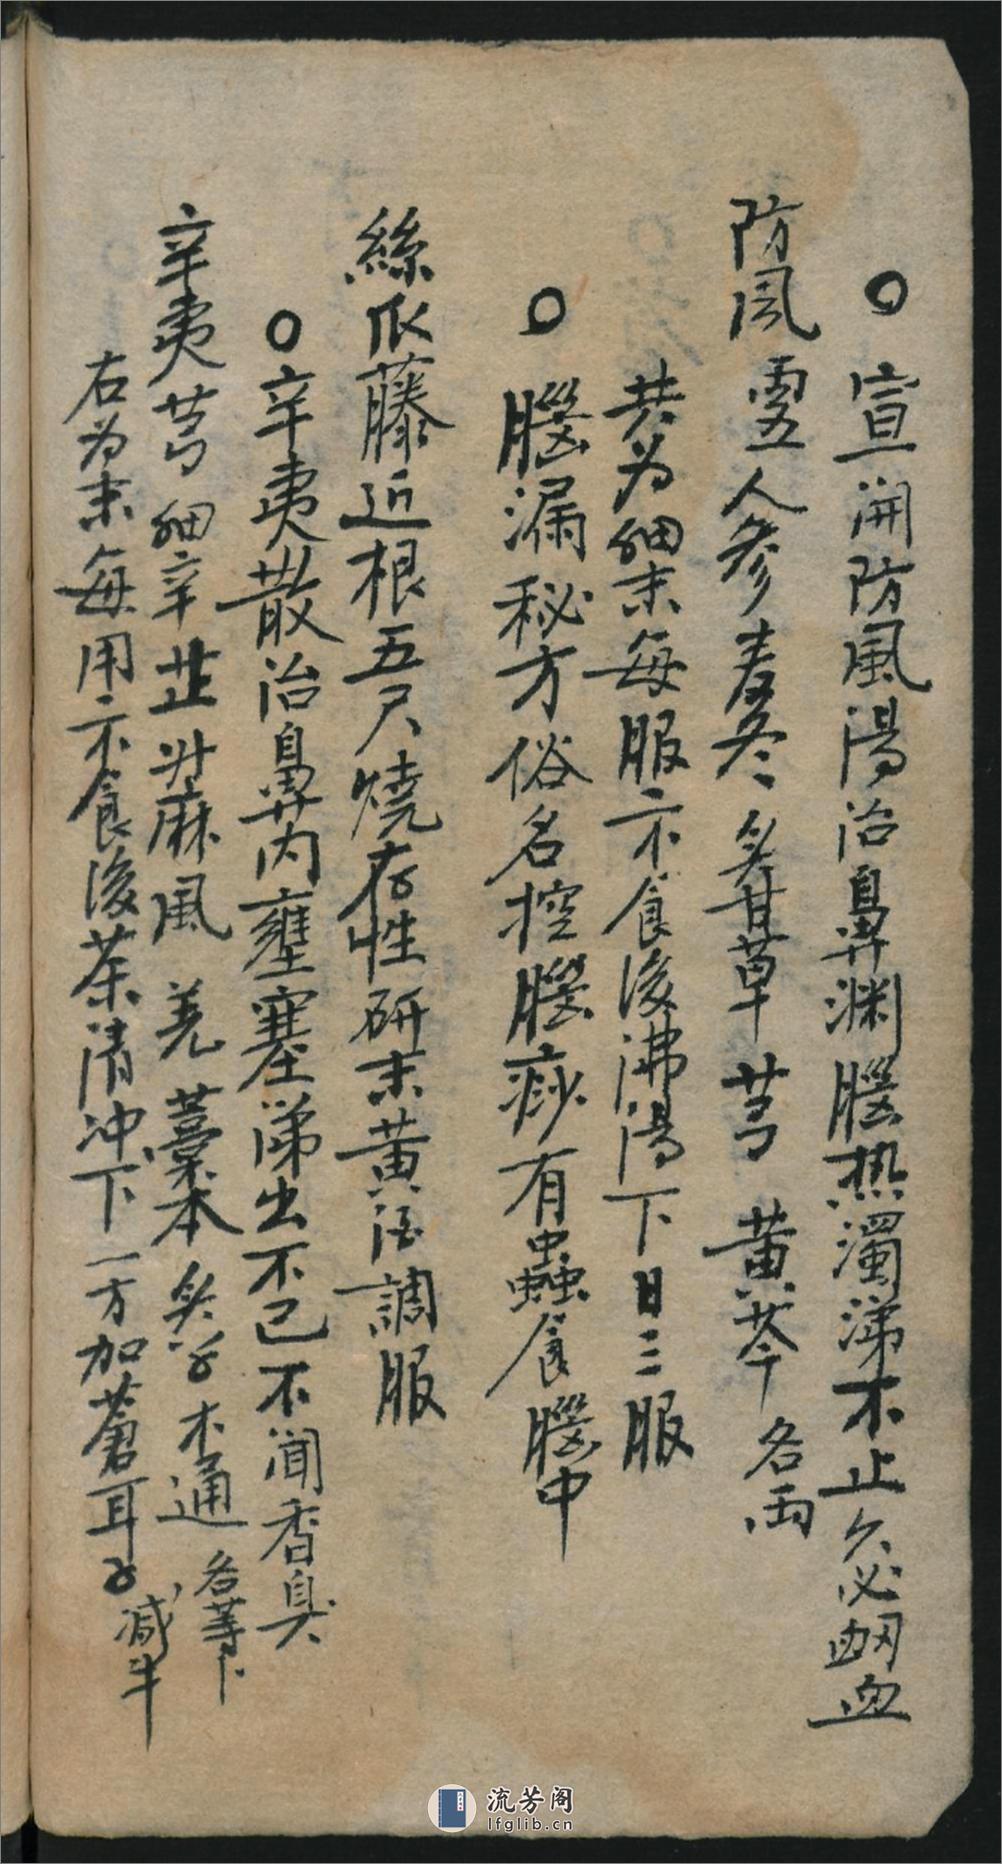 ○宣開防風湯治鼻渊腦热濁涕不止久必衂血
防風 人參麦冬炙甘草芎黄芩各両
共为細末每服 食後沸湯下日三服
○腦漏秘方俗名控腦痧有蟲食腦中
絲瓜藤近根五尺燒存性研末黄酒調服
○辛夷散治鼻内壅塞涕出不已不闻香臭
辛夷芎細辛芷升麻風羌藁本炙 木通各等
右为末每用 食後茶清冲下一方加蒼耳子减半
流芳阁
lfglib.cn